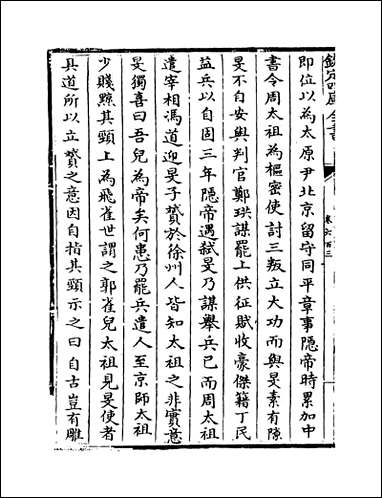 欽定四庫全書
卷六百三
即位以為太原尹北京留守同平章事隱帝時累加中
書令周太祖為樞密使討三叛立大功而與旻素有隙
旻不自安與判官鄭珙謀罷上供征賦收豪傑籍丁民
益兵以自固三年隱帝遇弑旻乃謀舉兵已而周太祖
遣宰相馮道迎旻子贇於徐州人皆知太祖之非實意
旻獨喜曰吾兒為帝矣何患乃罷兵遣人至京師太祖
少賤黥其頸上為飛雀世謂之郭雀兒太祖見旻使者
具道所以立贇之意因自指其頸示之曰自古豈有雕